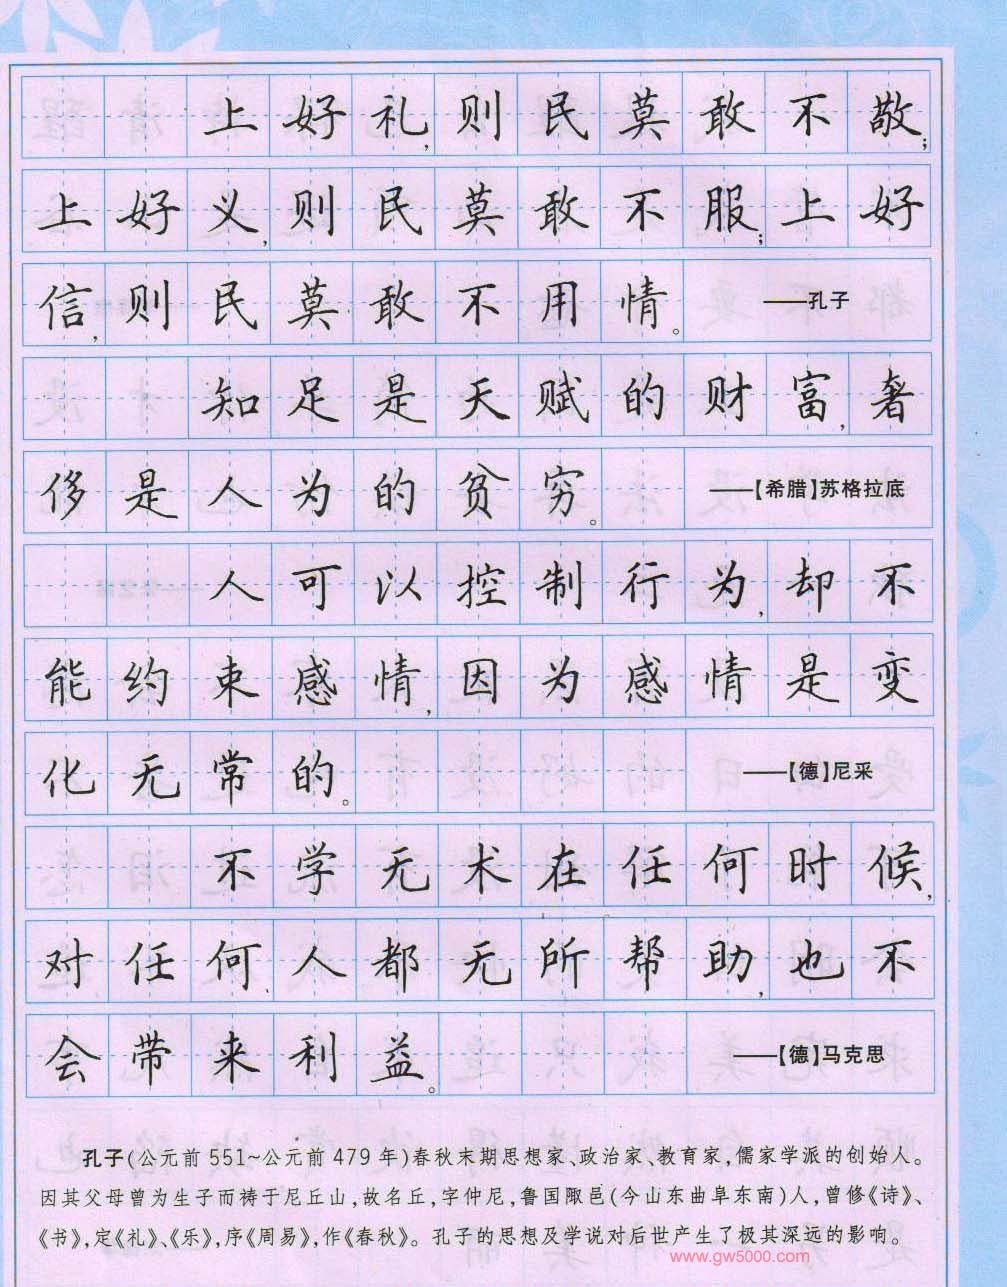 上好礼,则民莫敢不敬;
上好义,则民莫敢不服;上好
信,则民莫敢不用情。 ——孔子
知足是天赋的财富,奢
侈是人为的贫穷。 ——【希腊】苏格拉底
人可以控制行为,却不
能约束感情,因为感情是变
化无常的。 ——【德】尼采
不学无术在任何时候,
对任何人都无所帮助,也不
会带来利益。 ——【德】马克思
孔子(公元前551~公元前479年)春秋末期思想家、政治家、教育家,儒家学派的创始人。
因其父母曾为生子而祷于尼丘山,故名丘,字仲尼,鲁国陬邑(今山东曲阜东南)人,曾修《诗》、
《书》,定《礼》、《乐》,序《周易》,作《春秋》。孔子的思想及学说对后世产生了极其深远的影响。
www.gw5000.com